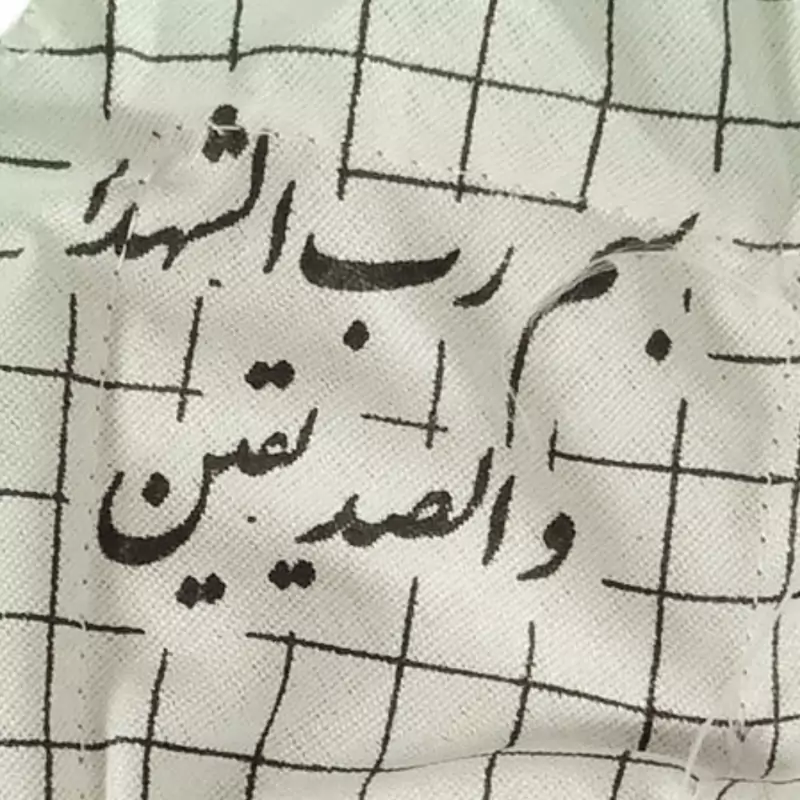 بسم رب الشهداء
والصدیقین